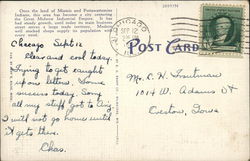 Once the land of Miamis and Pottawattomie
Indians, this area has become a city covering
the Great Midwest Industrial Empire. It
has had steady growth, until today its main business
street serves a large trade territory. Its
well stocked shops supply its population with
every need.
CHICAGO
SEP 12
POST CARD
Chicago Sept 12
Clear and cool today.
Trying to get caught
up on letters. Some
success today. Sorry
all my stuff got to Chig
I will not go home until
it gets there.
Chas.
Mr. C. H. Troutman
1014 W. Adams St
Creston, Iowa